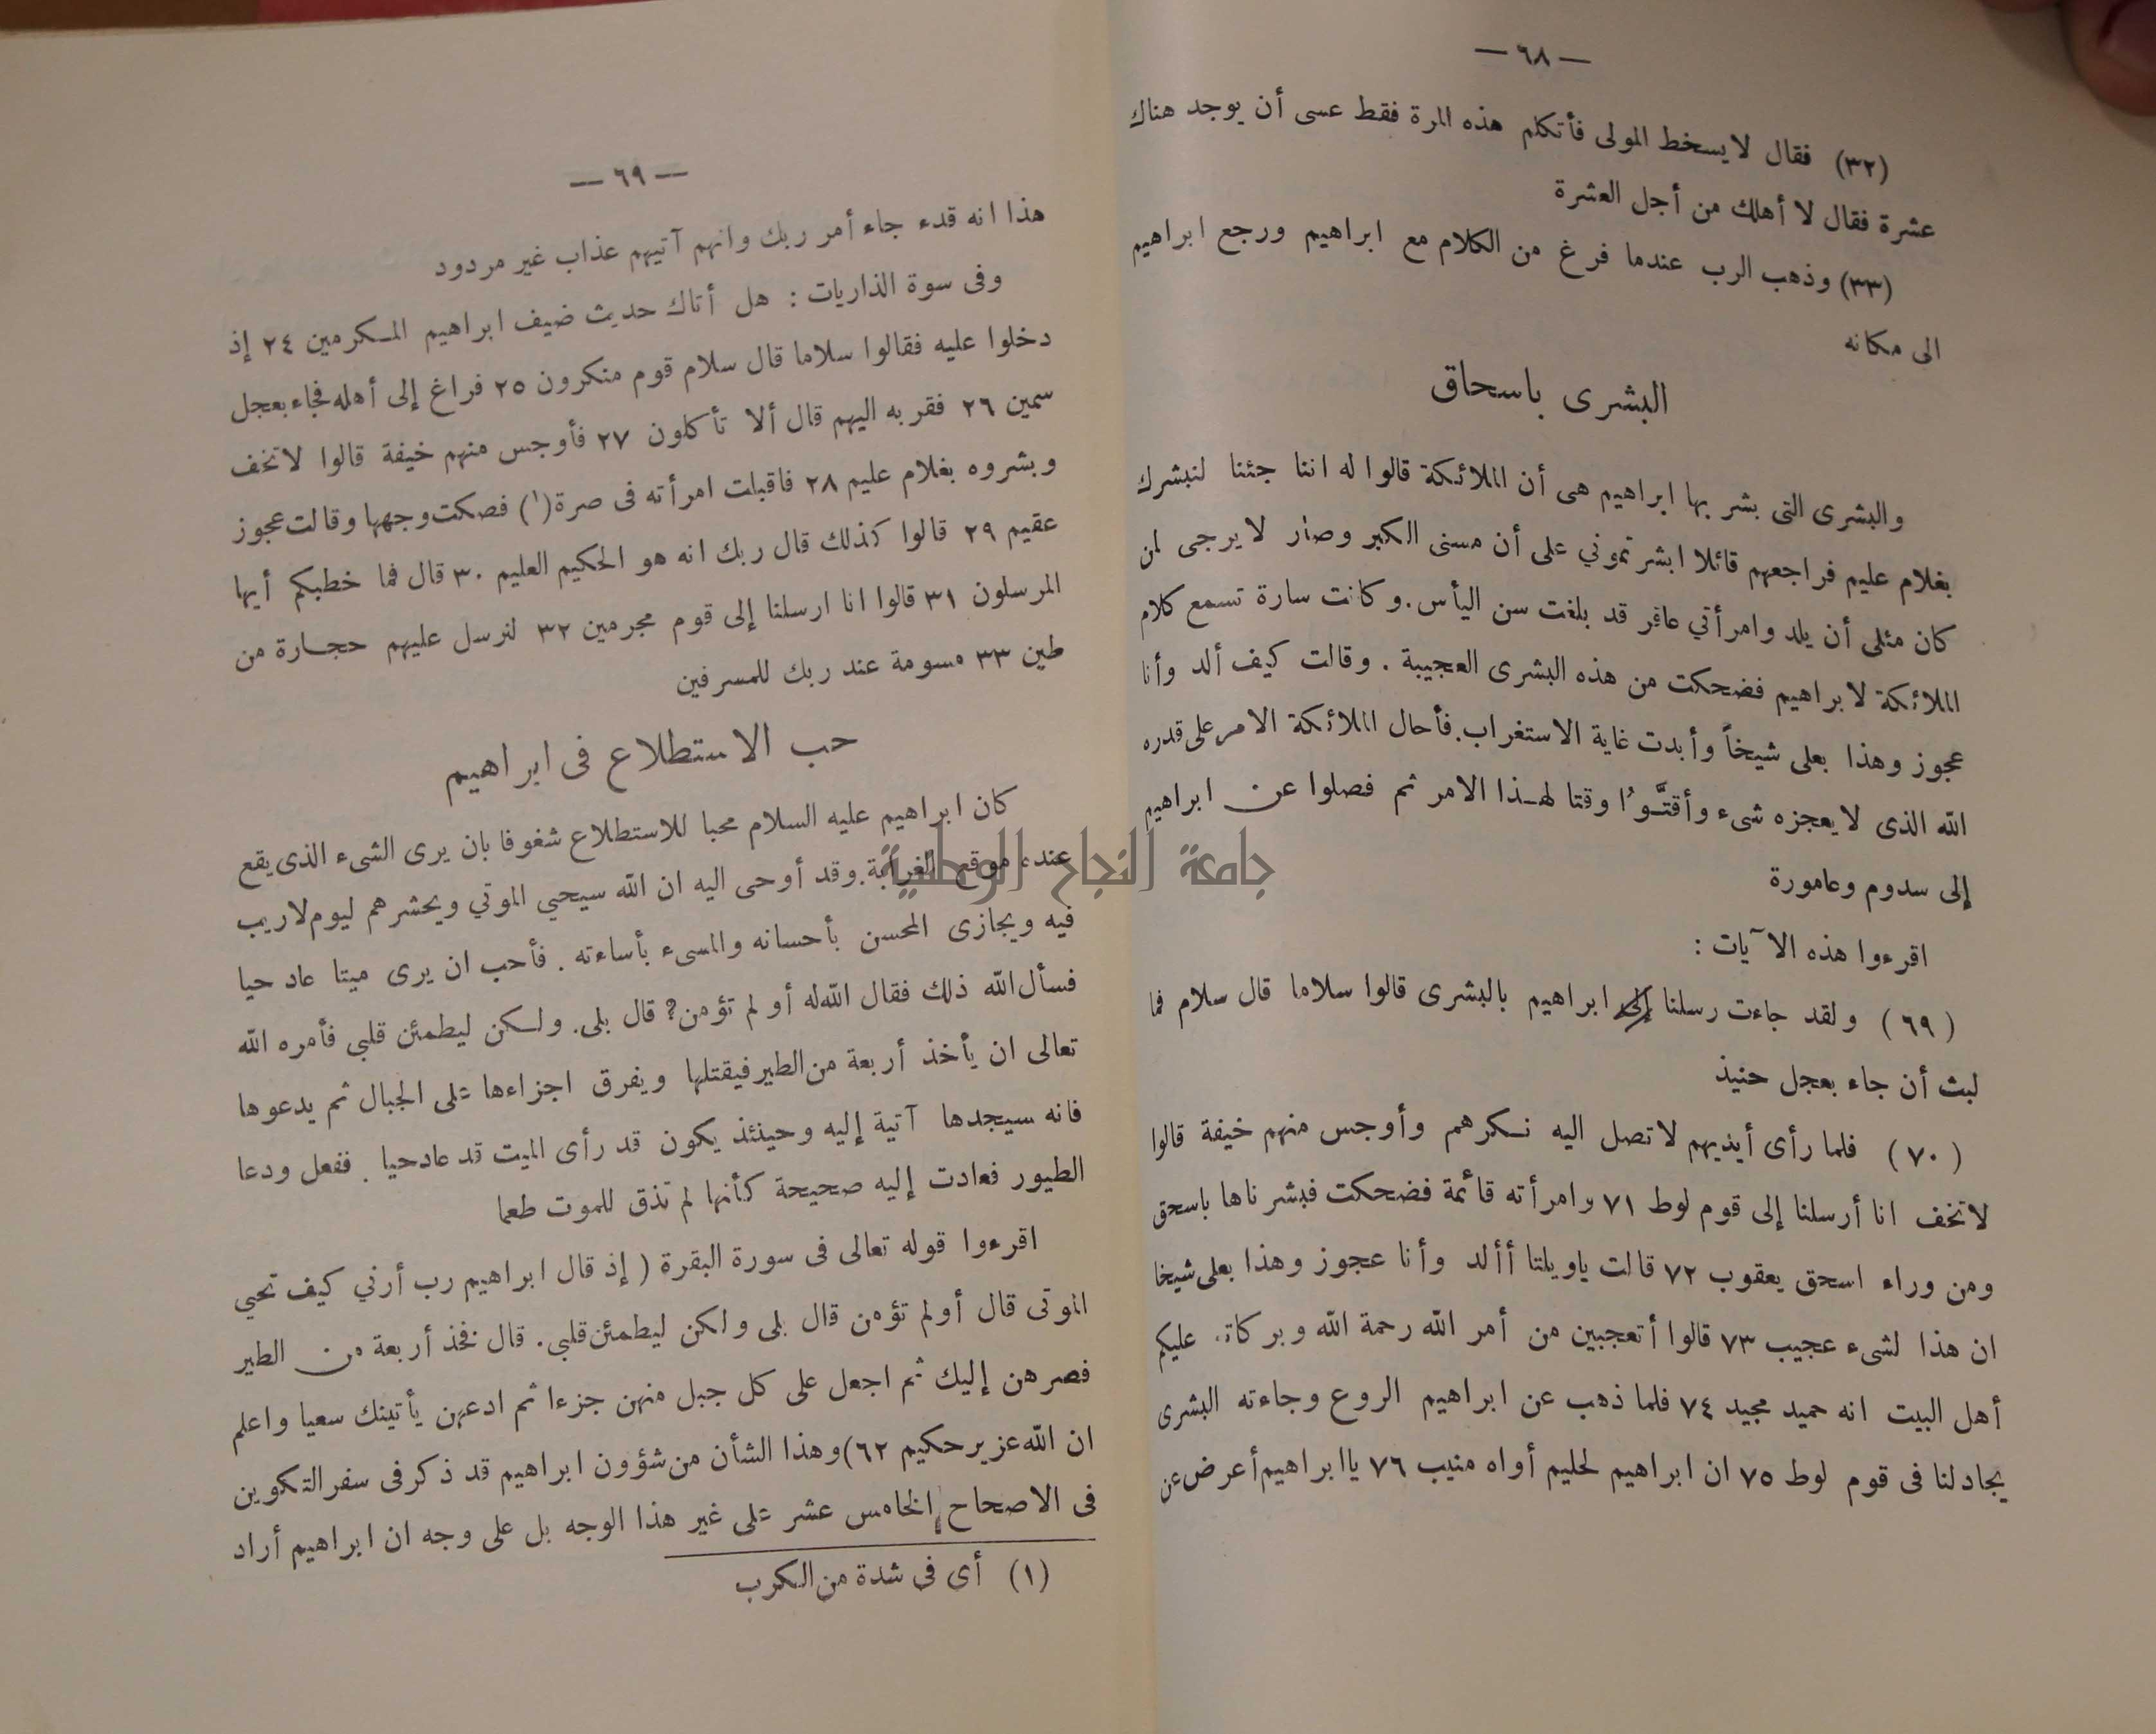 — ٦٨ —
(٣٢) فقال لا يسخط المولى فأتكلم هذه المرة فقط عسى أن يوجد هناك
عشرة فقال لا أهلك من أجل العشرة
(٣٣) وذهب الرب عندما فرغ من الكلام مع ابراهيم ورجع ابراهيم
الى مكانه
البشرى باسحاق
والبشرى التى بشر بها ابراهيم هى أن الملائكة قالوا له اننا جئنا لنبشرك
بغلام عليم فراجعهم قائلا ابشرتموني على أن مسنى الكبر وصار لا يرجى لمن
كان مثلى أن يلد وامرأتي عاقر قد بلغت سن اليأس. وكانت سارة تسمع كلام
الملائكة لابراهيم فضحكت من هذه البشرى العجيبة . وقالت كيف ألد وأنا
عجوز وهذا بعلى شيخاً وأبدت غاية الاستغراب. فأحال الملائكة الامر على قدره
الله الذى لا يعجزه شىء وأقتَّوُا وقتا لهذا الامر ثم فصلوا عن ابراهيم
إلى سدوم وعامورة
اقرءوا هذه الآيات :
(٦٩) ولقد جاءت رسلنا إلى ابراهيم بالبشرى قالوا سلاما قال سلام فما
لبث أن جاء بعجل حنيذ
(٧٠) فلما رأى أيديهم لا تصل اليه نكرهم وأوجس منهم خيفة قالوا
لا تخف انا أرسلنا إلى قوم لوط ٧١ وامرأته قائمة فضحكت فبشرناها باسحق
ومن وراء اسحق يعقوب ٧٢ قالت ياويلتا أألد وأنا عجوز وهذا بعلى شيخا
ان هذا لشىء عجيب ٧٣ قالوا أتعجبين من أمر الله رحمة الله وبركاته عليكم
أهل البيت انه حميد مجيد ٧٤ فلما ذهب عن ابراهيم الروع وجاءته البشرى
يجادلنا فى قوم لوط ٧٥ ان ابراهيم لحليم أواه منيب ٧٦ يا ابراهيم أعرض عن
— ٦٩ —
هذا انه قدء جاء أمر ربك وانهم آتيهم عذاب غير مردود
وفى سوة الذاريات : هل أتاك حديث ضيف ابراهيم المكرمين ٢٤ إذ
دخلوا عليه فقالوا سلاما قال سلام قوم منكرون ٢٥ فراغ إلى أهله فجاء بعجل
سمين ٢٦ فقربه اليهم قال ألا تأكلون ٢٧ فأوجس منهم خيفة قالوا لا تخف
وبشروه بغلام عليم ٢٨ فاقبلت امرأته فى صرة(١) فصكت وجهها وقالت عجوز
عقيم ٢٩ قالوا كذلك قال ربك انه هو الحكيم العليم ٣٠ قال فما خطبكم أيها
المرسلون ٣١ قالوا انا ارسلنا إلى قوم مجرمين ٣٢ لنرسل عليهم حجارة من
طين ٣٣ مسومة عند ربك للمسرفين
حب الاستطلاع فى ابراهيم
كان ابراهيم عليه السلام محبا للاستطلاع شغوفا بان يرى الشىء الذى يقع
عنده موقع الغرابة. وقد أوحى اليه ان الله سيحيي الموتي ويحشرهم ليوم لا ريب
فيه ويجازى المحسن بأحسانه والمسىء بأساءته . فأحب ان يرى ميتا عاد حيا
فسأل الله ذلك فقال الله له أو لم تؤمن؟ قال بلى. ولكن ليطمئن قلبي فأمره الله
تعالى ان يأخذ أربعة من الطير فيقتلها ويفرق اجزاءها على الجبال ثم يدعوها
فانه سيجدها آتية إليه وحينئذ يكون قد رأى الميت قد عاد حيا . ففعل ودعا
الطيور فعادت إليه صحيحة كأنها لم تذق للموت طعما
اقرءوا قوله تعالى فى سورة البقرة ( إذ قال ابراهيم رب أرني كيف تحيي
الموتى قال أولم تؤمن قال بلى ولكن ليطمئن قلبي. قال فخذ أربعة من الطير
فصرهن إليك ثم اجعل على كل جبل منهن جزءا ثم ادعهن يأتينك سعيا واعلم
ان الله عزيز حكيم ٦٢) وهذا الشأن من شؤون ابراهيم قد ذكر فى سفر التكوين
فى الاصحاح الخامس عشر على غير هذا الوجه بل على وجه ان ابراهيم أراد
(١) أى فى شدة من الكرب
جامعة النجاح الوطنية